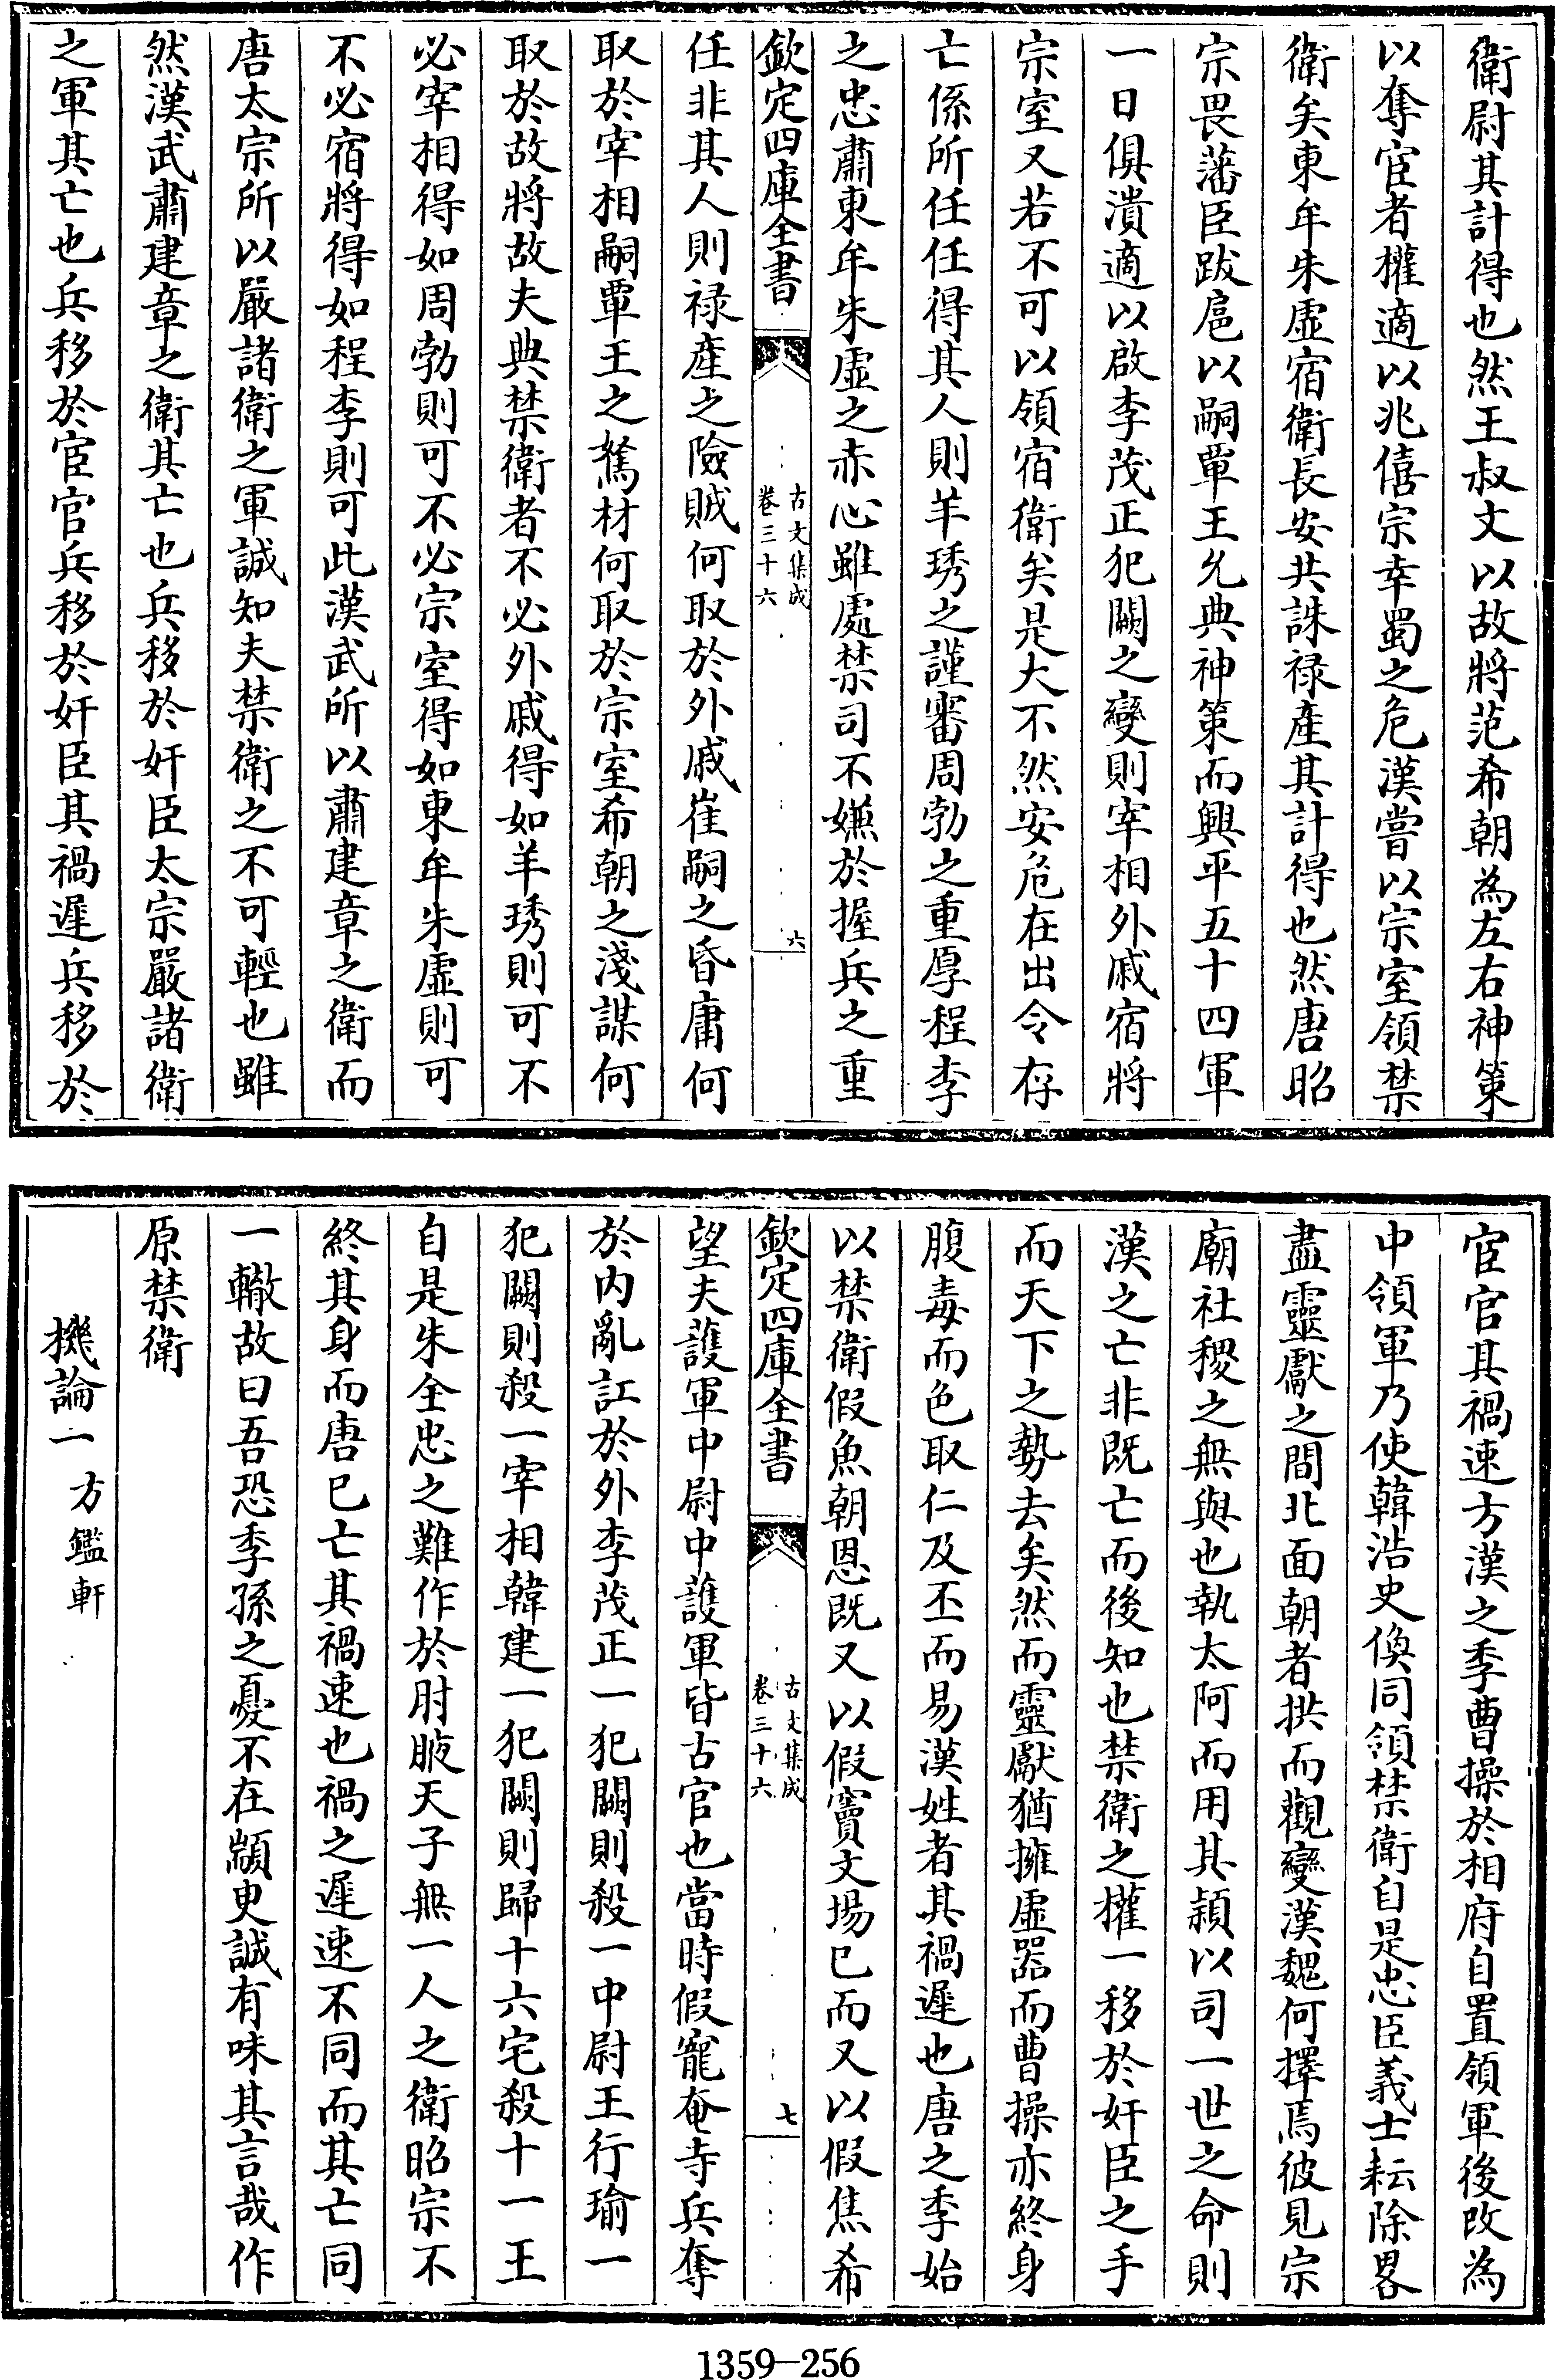 衛尉其計得也然王叔文以故將范希朝為左右神策
以奪宦者權適以兆僖宗幸蜀之危漢嘗以宗室領禁
衛矣東牟朱虛宿衛長安共誅禄產其計得也然唐昭
宗畏藩臣跋扈以嗣覃王允典神策而興平五十四軍
一日俱潰適以啟李茂正犯闕之變則宰相外戚宿將
宗室又若不可以領宿衛矣是大不然安危在出令存
亡係所任任得其人則羊琇之謹審周勃之重厚程李
之忠肅東牟朱虛之赤心雖處禁司不嫌於握兵之重
欽定四庫全書
古文集成
卷三十六
六
任非其人則禄產之險賊何取於外戚崔嗣之昏庸何
取於宰相嗣覃王之駑材何取於宗室希朝之淺謀何
取於故將故夫典禁衛者不必外戚得如羊琇則可不
必宰相得如周勃則可不必宗室得如東牟朱虛則可
不必宿將得如程李則可此漢武所以肅建章之衛而
唐太宗所以嚴諸衛之軍誠知夫禁衛之不可輕也雖
然漢武肅建章之衛其亡也兵移於奸臣太宗嚴諸衛
之軍其亡也兵移於宦官兵移於奸臣其禍遲兵移於
宦官其禍速方漢之季曹操於相府自置領軍後改為
中領軍乃使韓浩史渙同領禁衛自是忠臣義士耘除畧
盡靈獻之間北面朝者拱而觀變漢魏何擇焉彼見宗
廟社稷之無與也執太阿而用其穎以司一世之命則
漢之亡非既亡而後知也禁衛之權一移於奸臣之手
而天下之勢去矣然而靈獻猶擁虛器而曹操亦終身
腹毒而色取仁及丕而易漢姓者其禍遲也唐之季始
以禁衛假魚朝恩既又以假竇文場已而又以假焦希
欽定四庫全書
古文集成
卷三十六
七
望夫護軍中尉中護軍皆古官也當時假寵奄寺兵奪
於內亂訌於外李茂正一犯闕則殺一中尉王行瑜一
犯闕則殺一宰相韓建一犯闕則歸十六宅殺十一王
自是朱全忠之難作於肘腋天子無一人之衛昭宗不
終其身而唐已亡其禍速也禍之遲速不同而其亡同
一轍故曰吾恐季孫之憂不在顓臾誠有味其言哉作
原禁衛
機論一　方鑑軒
1359-256